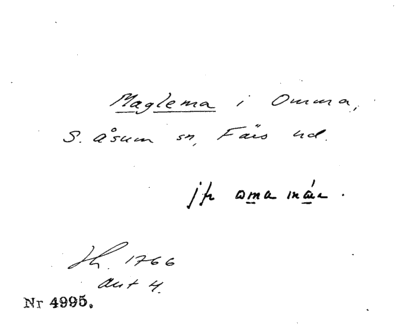 Maglema i Omma,
S. Åsum sn, Färs hd.
jfr oma máe.
Jh. 1766
akt 4.
Nr 4995.